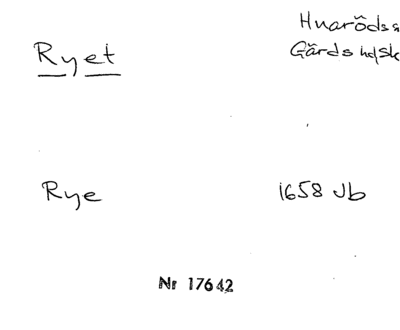 Ryet
Hvaröds s
Gärds hd, Sk
Rye
1658 Jb
Nr 17642